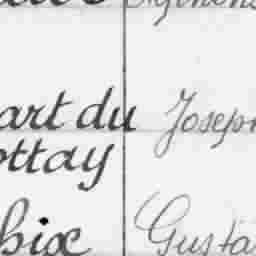 art du Joseph
ottay
hix Gusta